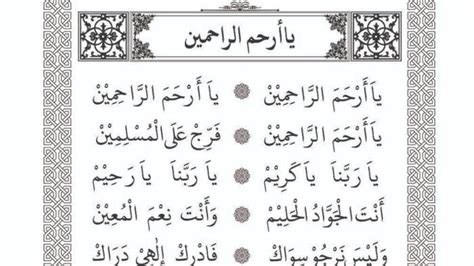 ياأرحم الراحمين
يَا أَرْحَمَ الرَّاحِمِيْنَ ۞ يَا أَرْحَمَ الرَّاحِمِيْنْ
يَا أَرْحَمَ الرَّاحِمِيْنَ ۞ فَرِّجْ عَلَى الْمُسْلِمِيْنْ
يَا رَبَّنَا يَا كَرِيْمْ ۞ يَا رَبَّنَا يَا رَحِيْمْ
أَنْتَ الْجَوَّادُ الْحَلِيْمْ ۞ وَأَنْتَ نِعْمَ الْمُعِيْنْ
وَلَيْسَ نَرْجُوْ سِوَاكَ ۞ فَادْرِكْ اِلٰهِيْ دَرَاكَ